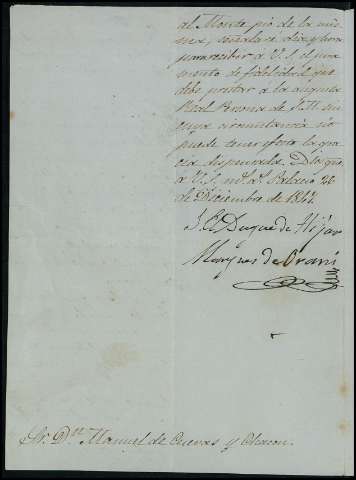 al Monte pio de la mis-
ma, señalará dia y hora
para recibir á V. S. el jura-
mento de fidelidad que
debe prestar á la augusta
Real Persona de S. M. sin
cuya circunstancia no
puede tener efecto la gra-
cia dispensada. Dios gue.
á V. S. ms. as. Palacio 26
de Diciembre de 1847.
El Duque de Hijar
Marques de Orani
Sr. Dn. Manuel de Cuevas y Chacon.